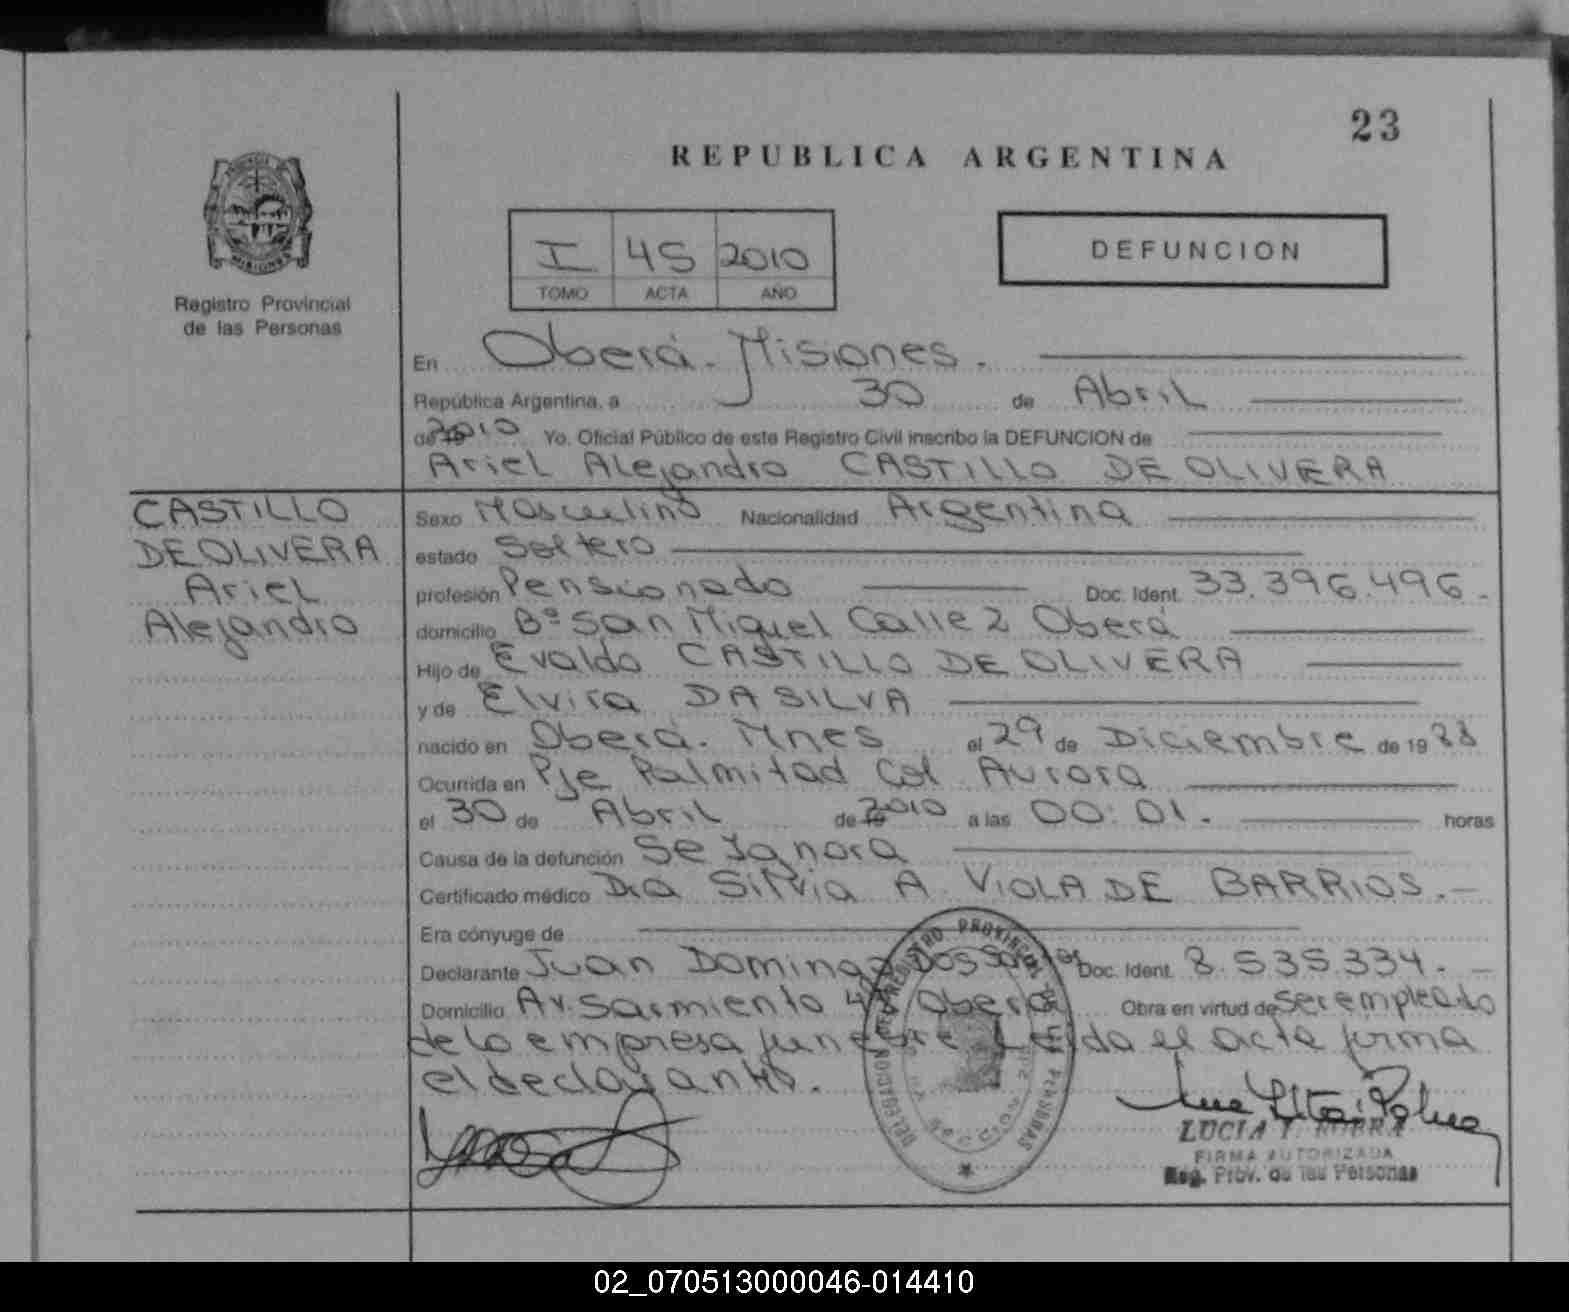 23
REPUBLICA ARGENTINA
MISIONES
Registro Provincial
de las Personas
I 45 2010
TOMO ACTA AÑO
DEFUNCION
En Oberá. Misiones.
República Argentina, a 30 de Abril
de 2010 Yo. Oficial Público de este Registro Civil inscribo la DEFUNCION de
Ariel Alejandro CASTILLO DE OLIVERA
CASTILLO
DE OLIVERA
Ariel
Alejandro
Sexo Masculino Nacionalidad Argentina
estado Soltero
profesión Pensionado Doc. Ident. 33.396.496.
domicilio Bº San Miguel Calle 2 Oberá
Hijo de Evaldo CASTILLO DE OLIVERA
y de Elvira DA SILVA
nacido en Oberá. Mnes el 29 de Diciembre de 19 88
Ocurrida en Pje Palmitad Col Aurora
el 30 de Abril de 2010 a las 00:01. horas
Causa de la defunción Se Ignora
Certificado médico Dra Silvia A VIOLA DE BARRIOS.
Era cónyuge de
Declarante Juan Domingo Dos Santos Doc. Ident. 8.535.334.
Domicilio Av. Sarmiento Oberá Obra en virtud de ser empleado
de la empresa funebre Leida el acta firma
el declarante.
DELEGACION REGISTRO PROVINCIAL DE LAS PERSONAS
SECCION
LUCIA
FIRMA AUTORIZADA
Reg. Prov. de las Personas
02_070513000046-014410